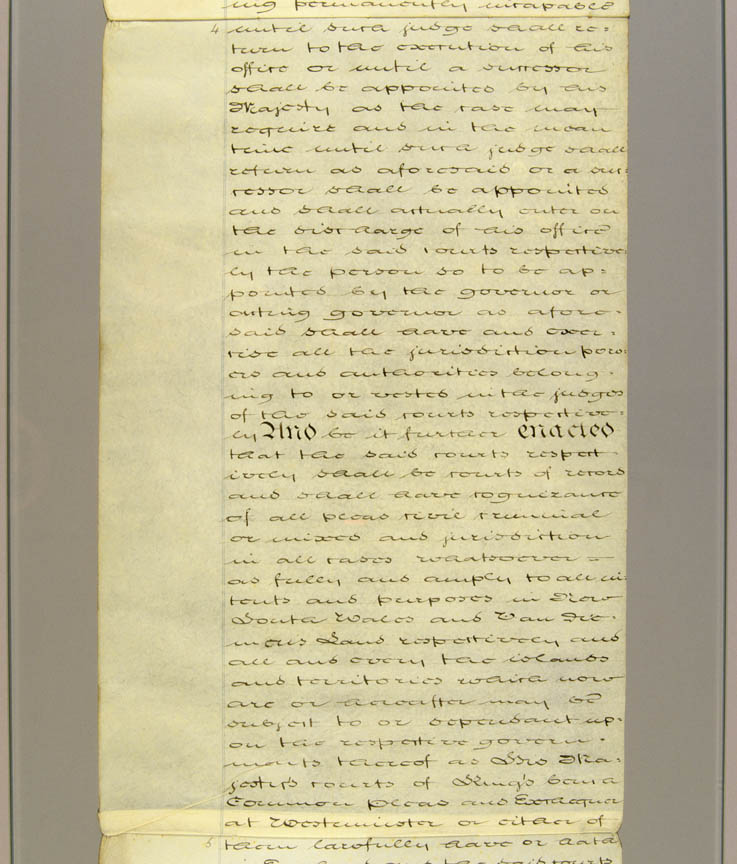 ing permanently incapable
4 until such judge shall re=
turn to the execution of his
office or until a successor
shall be appointed by His
Majesty as the case may
require and in the mean
time until such judge shall
return as aforesaid or a suc=
cessor shall be appointed
and shall actually enter on
the discharge of his office
in the said courts respective=
ly the person so to be ap=
pointed by the governor or
acting governor as afore=
said shall have and exer=
cise all the jurisdiction pow=
ers and authorities belong=
ing to or vested in the judges
of the said courts respective=
ly And be it further enacted
that the said courts respect=
ively shall be courts of record
and shall have cognizance
of all pleas civil criminal
or mixed and jurisdiction
in all cases whatsoever =
as fully and amply to all in=
tents and purposes in New
South Wales and Van Die=
mens Land respectively and
all and every the islands
and territories which now
are or hereafter may be
subject to or dependant up=
on the respective govern=
ments thereof as His Ma=
jesty's courts of King's bench
Common pleas and Exchequer
at Westminster or either of
5 them lawfully have or hath
in England and the said courts